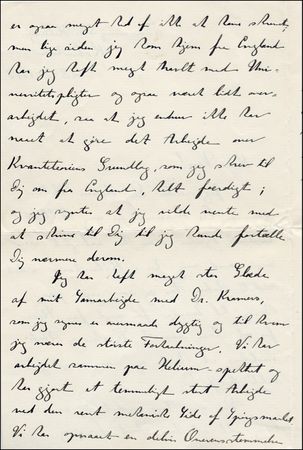 er ogsaa meget ked af ikke at have skrevet,
men lige siden jeg kom hjem fra England
har jeg haft meget travlt med Uni-
versitetspligter og ogsaa været lidt over-
arbejdet, saa at jeg endnu ikke har
naaet at gøre det Arbejde over
Kvanteteoriens Grundlag, som jeg skrev til
Dig om fra England, helt færdigt;
og jeg syntes at jeg vilde vente med
at skrive til Dig til jeg kunde fortælle
Dig nærmere derom.
Jeg har haft meget stor Glæde
af mit Samarbejde med Dr. Kramers,
som jeg synes er overmaade dygtig og til hvem
jeg nærer de største Forhaabninger. Vi har
arbejdet sammen paa Helium-spektret og
har gjort et temmeligt stort Arbejde
ved den rent mekaniske Side af Spørgsmaalet.
Vi har opnaaet en delvis Overensstemmelse